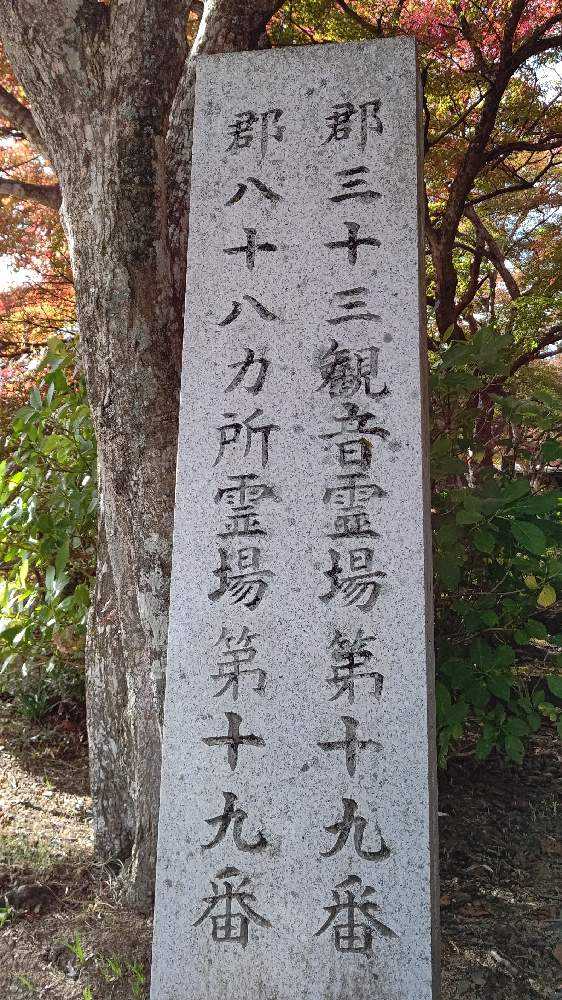 郡三十三観音霊場第十九番
郡八十八カ所霊場第十九番